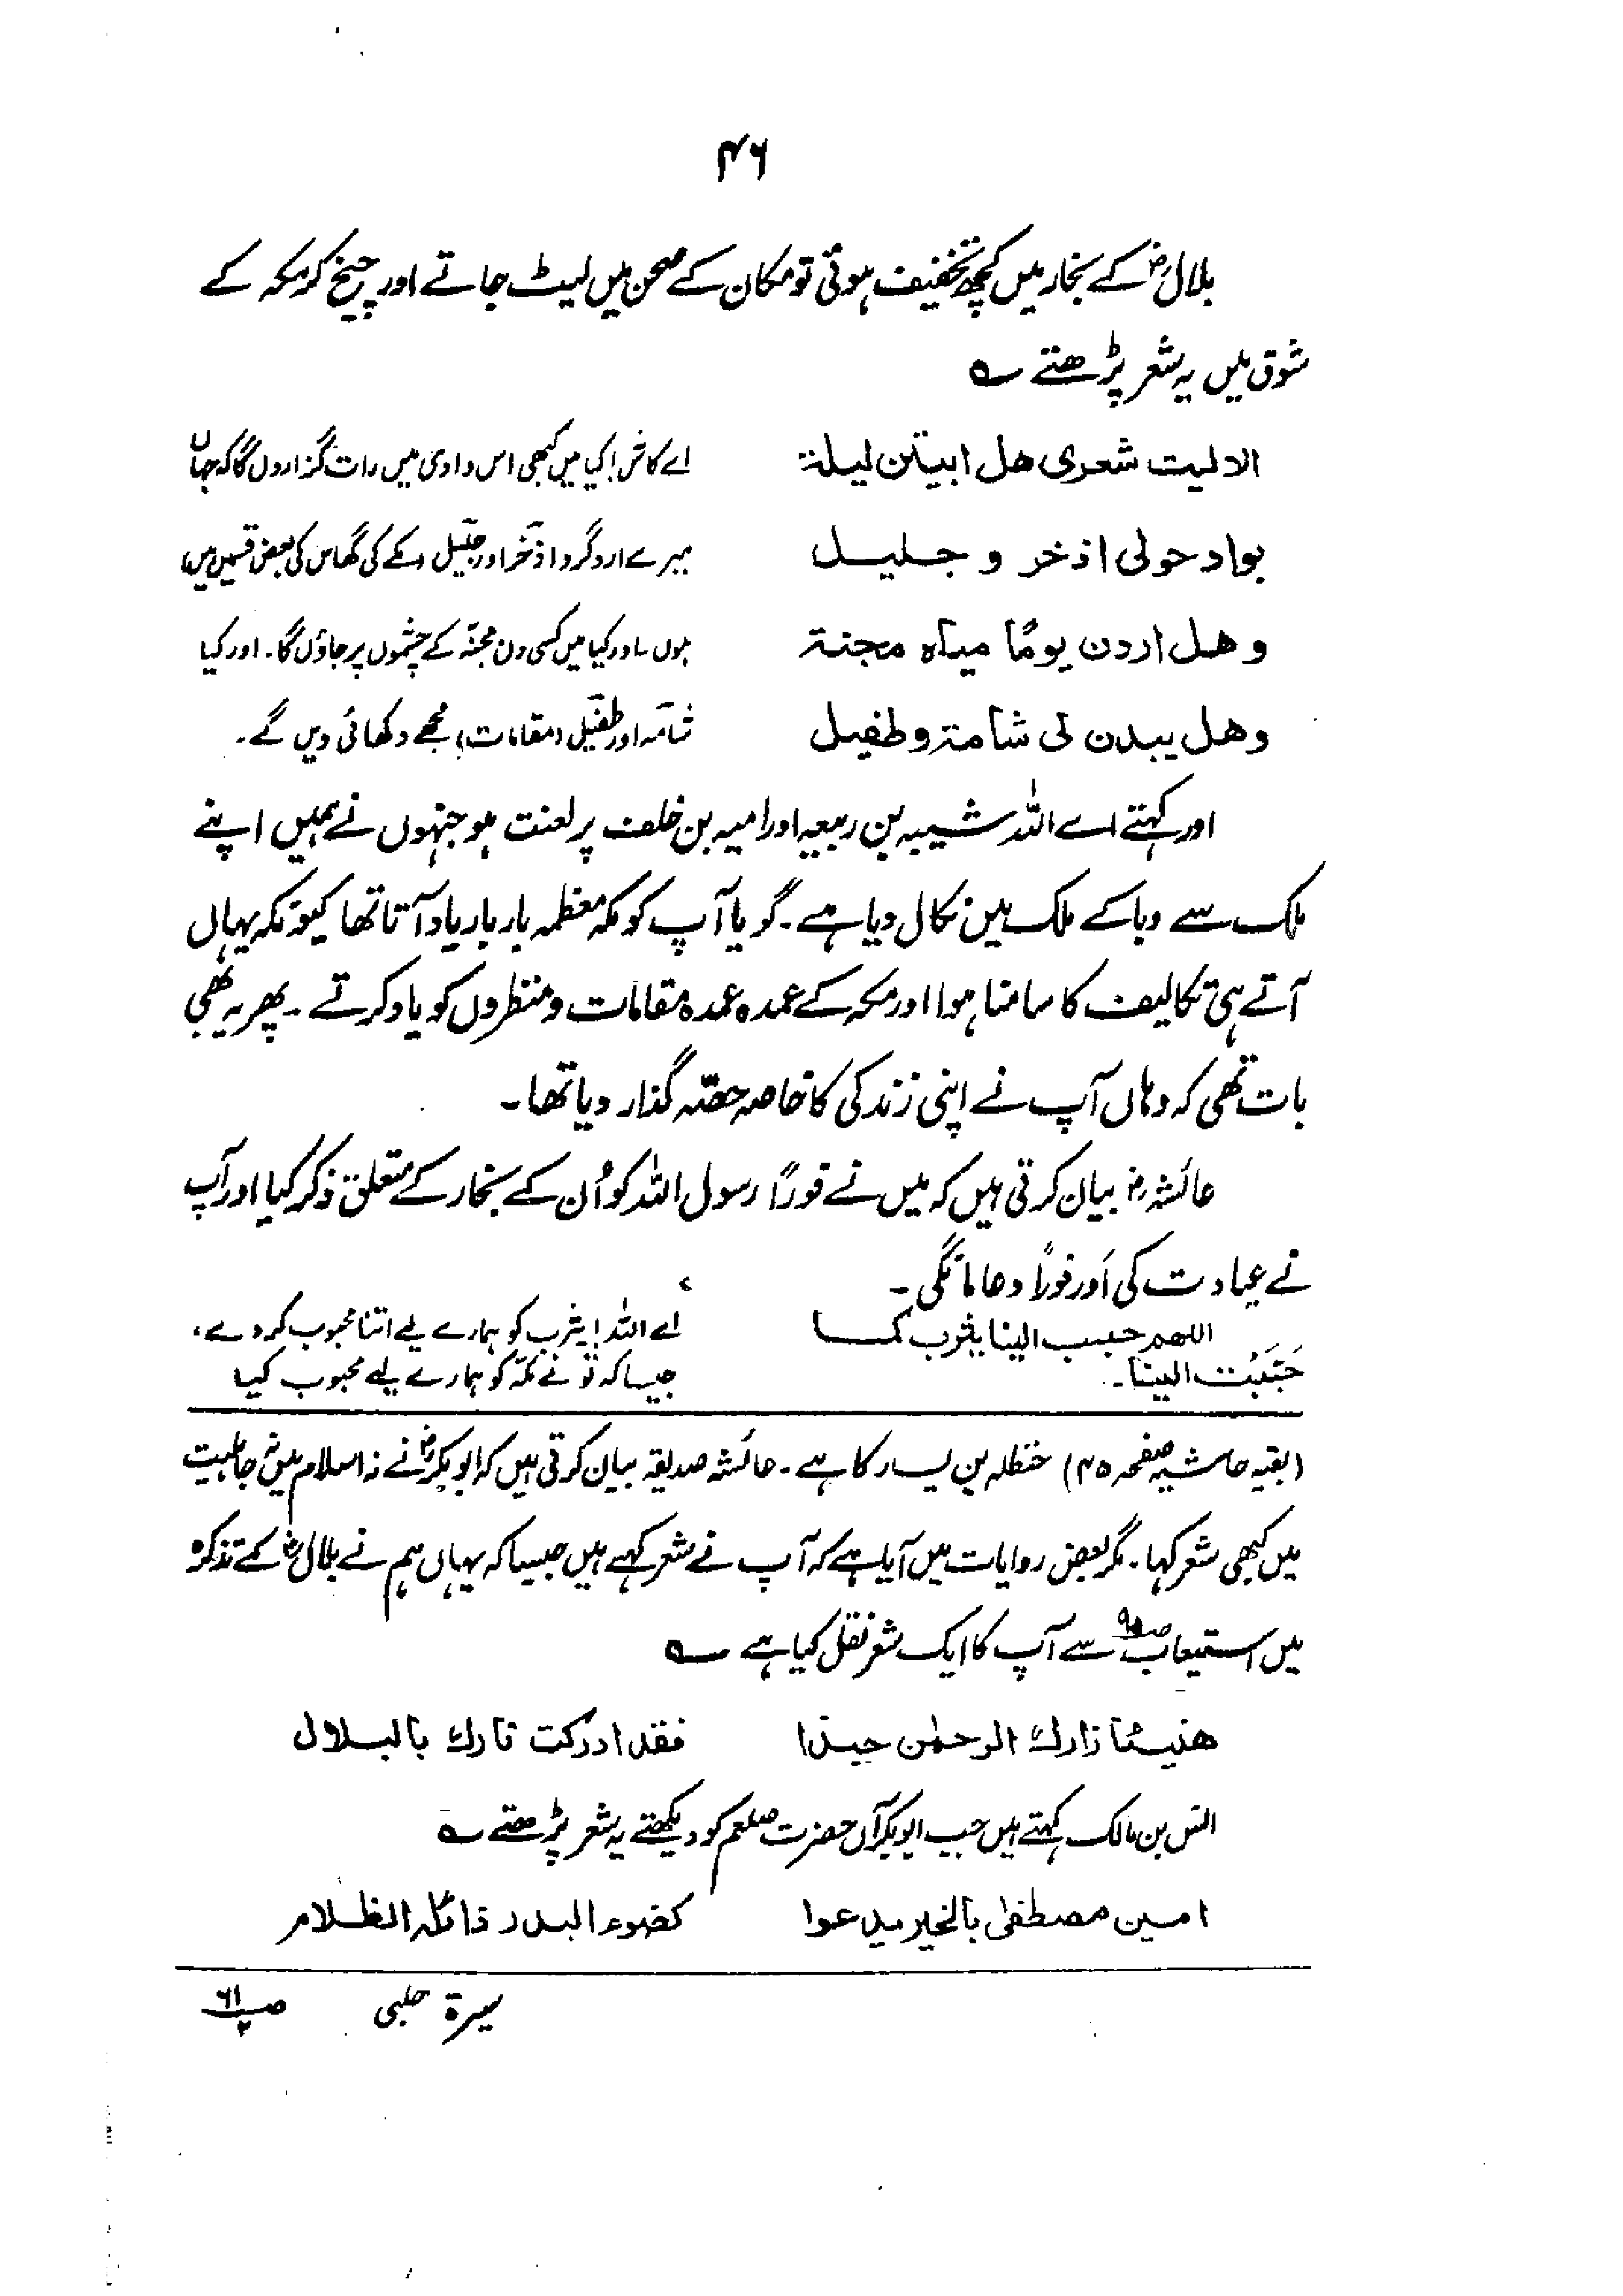 ۴۶
بلالؓ کے بخار میں کچھ تخفیف ہوئی تو مکان کے صحن میں لیٹ جاتے اور چیخ کر مکہ کے
شوق میں یہ شعر پڑھتے ؎
الا لیت شعری ھل ابیتن لیلۃ اے کاش! کیا میں کبھی اس وادی میں رات گزاروں گا کہ جہاں
بواد حولی اذخر و جلیل میرے ارد گرد اذخر اور جلیل (مکے کی گھاس کی بعض قسمیں ہیں)
و ھل اردن یومًا میاہ مجنۃ ہوں۔ اور کیا میں کسی دن مجنّہ کے چشموں پر جاؤں گا۔ اور کیا
وھل یبدن لی شامۃ و طفیل شامہ اور طفیل (مقامات) مجھے دکھائی دیں گے۔
اور کہتے اے اللہ شیبہ بن ربیعہ اور امیہ بن خلف پر لعنت ہو جنہوں نے ہمیں اپنے
ملک سے وبا کے ملک میں نکال دیا ہے۔ گویا آپ کو مکہ معظمہ بار بار یاد آتا تھا کیونکہ یہاں
آتے ہی تکالیف کا سامنا ہوا اور مکہ کے عمدہ عمدہ مقامات و منظروں کو یاد کرتے۔ پھر یہ بھی
بات تھی کہ وہاں آپ نے اپنی زندگی کا خاصہ حصّہ گذار دیا تھا۔
عائشہؓ بیان کرتی ہیں کہ میں نے فوراً رسول اللہ کو اُن کے بخار کے متعلق ذکر کیا اور آپ
نے عیادت کی اور فوراً دعا مانگی۔
اللھم حبب الینا یثرب کما اے اللہ! یثرب کو ہمارے لیے اتنا محبوب کر دے،
حَبَّبْتَ الینا۔ جیسا کہ تو نے مکّہ کو ہمارے لیے محبوب کیا
(بقیہ حاشیہ صفحہ ۴۵) حنظلہ بن یسار کا ہے۔ عائشہ صدیقہ بیان کرتی ہیں کہ ابوبکرؓ نے نہ اسلام میں نہ جاہلیت
میں کبھی شعر کہا۔ مگر بعض روایات میں آیا ہے کہ آپ نے شعر کہے ہیں جیسا کہ یہاں ہم نے بلالؓ کے تذکرہ
میں استیعاب سے آپ کا ایک شعر نقل کیا ہے ؎
ھنیئا زادك الرحمٰن خیرا فقد ادرکت ثارك یا بلال
انس بن مالک کہتے ہیں جب ابوبکر آں حضرت صلعم کو دیکھتے یہ شعر پڑھتے ؎
امین مصطفی بالخیر یدعوا کضوء البدر زائلہ الظلام
سیرۃ حلبی ص ۶۱/۲